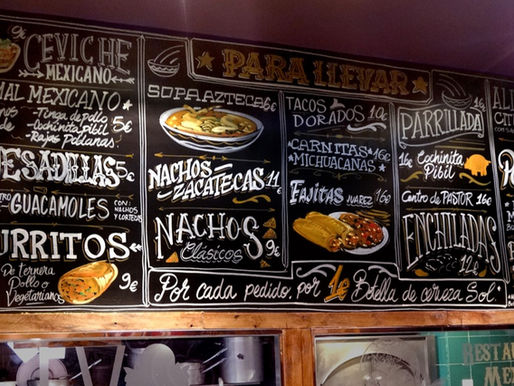 PARA LLEVAR
9€
CEVICHE
MEXICANO
MEXICANO
Tinga de pollo
Cochinita pibil
Rajas Poblanas
5€
5€
GUACAMOLES
CON:
NACHOS
Y CORTEZAS
BURRITOS
De Ternera
Pollo o
Vegetarianos
9€
SOPA AZTECA 6€
NACHOS
ZACATECAS 11€
NACHOS
Clásicos 9€
TACOS
DORADOS 10€
CARNITAS
MICHUACANAS 16€
FAJITAS JUAREZ 16€
16€
PARRILLADA
16€ Cochinita
Pibil
Centro de PASTOR 16€
ENCHILADAS
12€
Por cada pedido, por 1€ Botella de cerveza Sol
RESTAU
ME